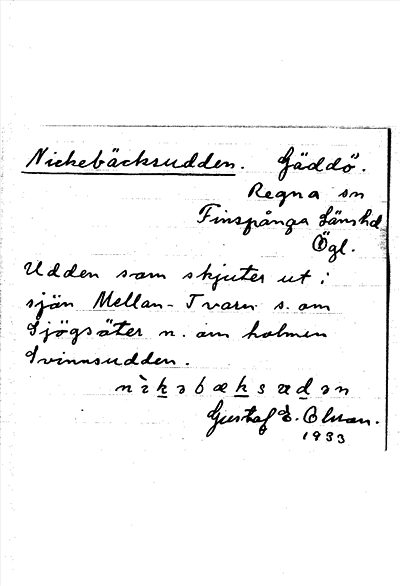 Nickebäcksudden. Gäddö.
Regna sn
Finspånga Länshd
Ögl.
Udden som skjuter ut i
sjön Mellan-Tvaren s. om
Sjögsäter n. om holmen
Svinnsudden.
nìkəbæksudən
Gustaf E. Olsson.
1933